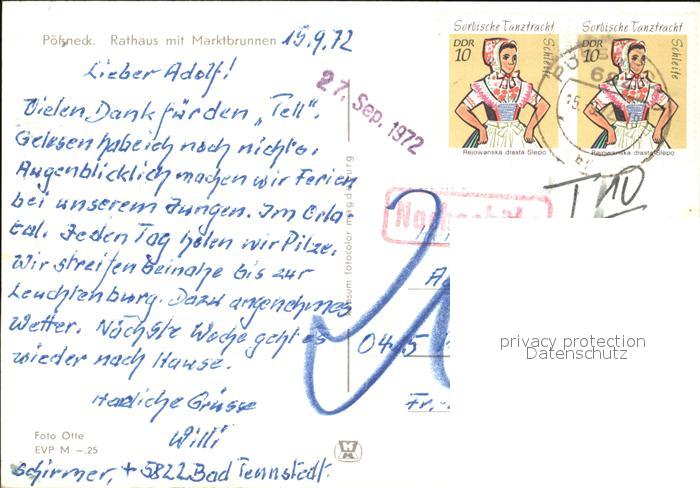 Pößneck. Rathaus mit Marktbrunnen
15.9.72
Lieber Adolf!
Vielen Dank für den „Tell“.
Gelesen habe ich noch nichts.
Augenblicklich machen wir Ferien
bei unserem Jungen. Im Orla-
tal. Jeden Tag holen wir Pilze.
Wir streifen beinahe bis zur
Leuchtenburg. Dazu angenehmes
Wetter. Nächste Woche geht es
wieder nach Hause.
Herzliche Grüsse
Willi
Foto Otte
EVP M –.25
Schirmer, + 5822 Bad Tennstedt.
27. Sep. 1972
Sorbische Tanztracht
DDR
10
Schleife
Rejowanska drasta Slepo
Sorbische Tanztracht
DDR
10
Schleife
Rejowanska drasta Slepo
T 10
privacy protection
Datenschutz